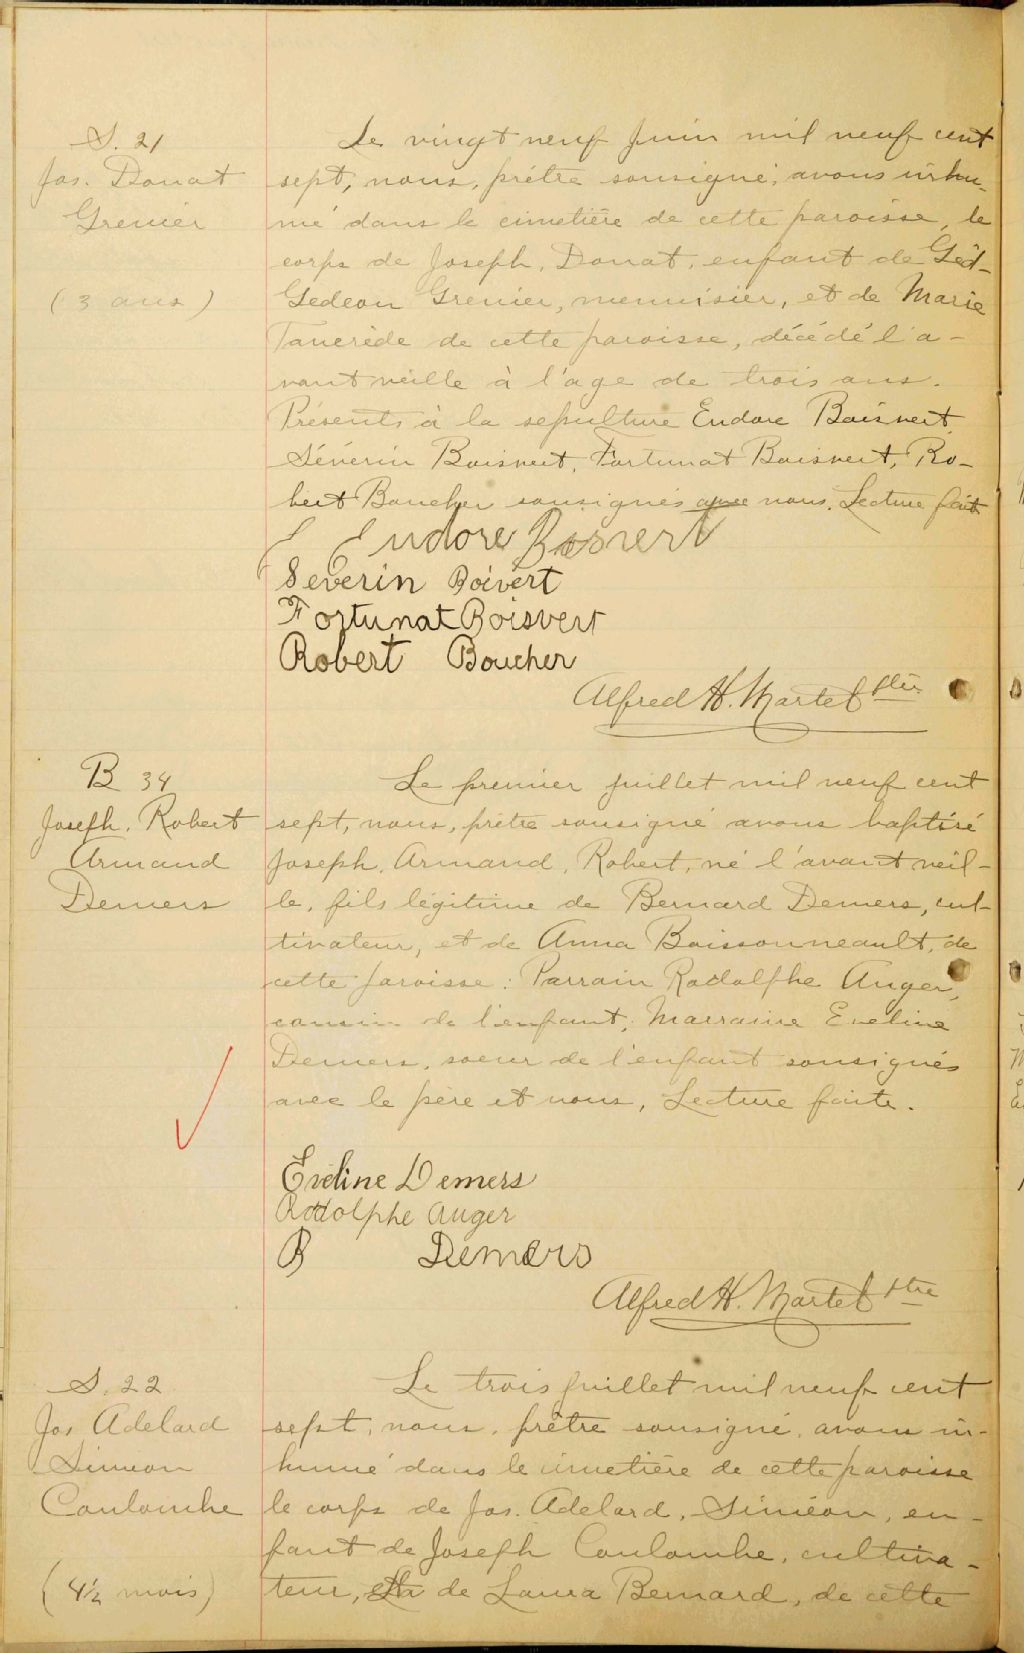 S. 21
Jos. Donat
Grenier
(3 ans)
Le vingt neuf Juin mil neuf cent
sept, nous, prêtre sousigné, avons inhu-
mé dans le cimetière de cette paroisse, le
corps de Joseph, Donat, enfant de Géd-
Gedeon Grenier, menuisier, et de Marie
Tancrède de cette paroisse, décédé l'a-
vant veille à l'age de trois ans.
Présents à la sepulture Eudore Boisvert,
Sévérin Boisvert, Fortunat Boisvert, Ro-
bert Boucher sousignés avec nous. Lecture faite
Eudore Boisvert
Severin Boivert
Fortunat Boisvert
Robert Boucher
Alfred H. Martel ptre
B 34
Joseph. Robert
Armand
Demers
Le premier juillet mil neuf cent
sept, nous, prêtre sousigné avons baptisé
Joseph, Armand, Robert, né l'avant veil-
le, fils légitime de Bernard Demers, cul-
tivateur, et de Anna Boissonneault, de
cette paroisse: Parrain Rodolphe Auger,
cousin de l'enfant; Marraine Eveline
Demers, soeur de l'enfant sousignés
avec le père et nous, Lecture faite.
Eveline Demers
Rodolphe Auger
B Demers
Alfred H. Martel ptre
S. 22
Jos Adelard
Siméon
Coulombe
(4½ mois)
Le trois juillet mil neuf cent
sept, nous, prêtre sousigné, avons in-
humé dans le cimetière de cette paroisse
le corps de Jos. Adelard, Siméon, en-
fant de Joseph Coulombe, cultiva-
teur, et de Laura Bernard, de cette